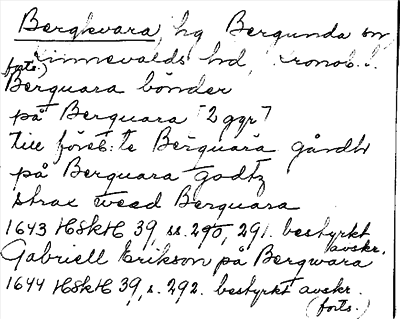 Bergkvara, hg Bergunda sn
(forts.) Kinnevalds hd, Kronob. l.
Berquara bönder
på Berquara [2 ggr]
till förbe:te Berquara gårdh
på Berquara godtz
strax weed Berquara
1643 HSkH 39, ss. 290, 291. bestyrkt avskr.
Gabriell Erikson på Bergwara
1644 HSkH 39, s. 292. bestyrkt avskr.
(forts.)